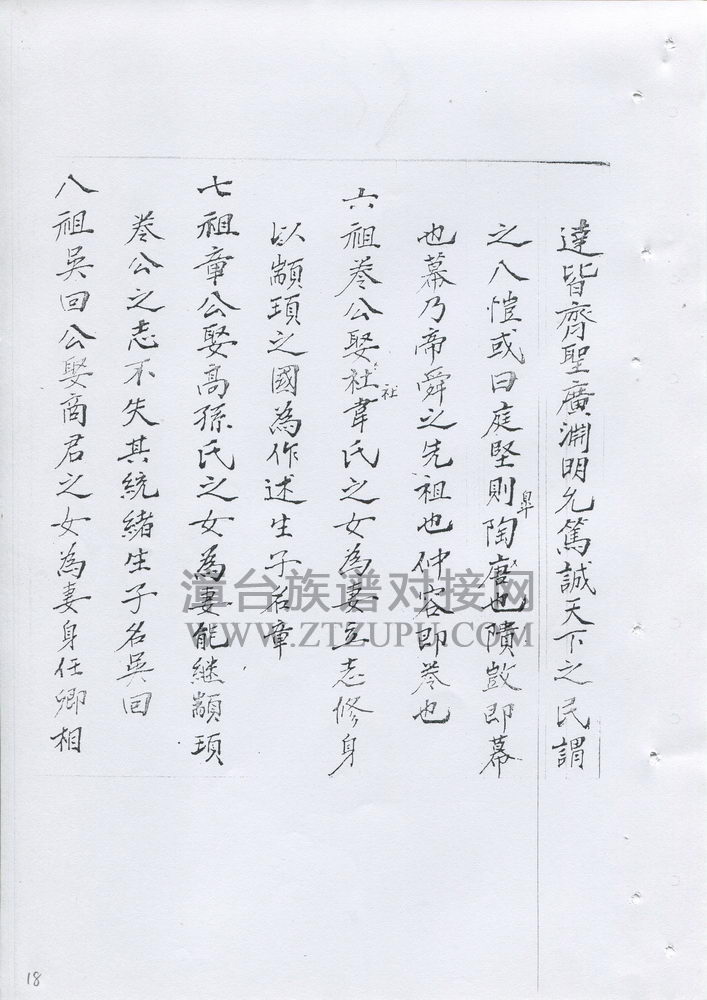 達皆齊聖廣淵明允篤誠天下之民謂
之八愷或曰庭堅則陶唐也隤敳即幕
皋
也幕乃帝舜之先祖也仲容即卷也
六祖卷公娶社韋氏之女為妻立志修身
社
以顓頊之國為作述生子名章
七祖章公娶高孫氏之女為妻能继顓頊
卷公之志不失其統緒生子名吳回
八祖吳回公娶商君之女為妻身任卿相
漳台族谱对接网
WWW.ZTZUPU.COM
18